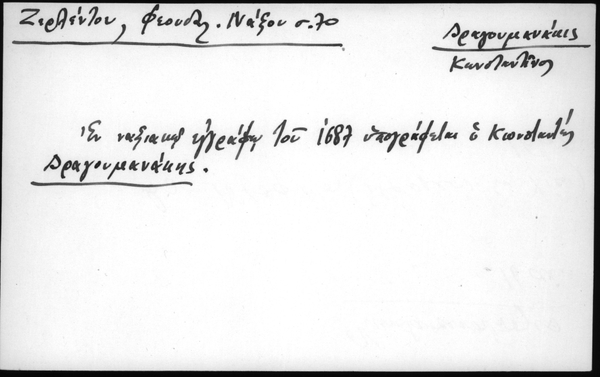 Ζερλέντου, Φεουδ. Νάξου σ. 70
Δραγουμανάκις
Κωνσταντῖνος
Ἐν ναξιακῷ ἐγγράφῳ τοῦ 1687 ὑπογράφεται ὁ Κωνσταντής
Δραγουμανάκης.